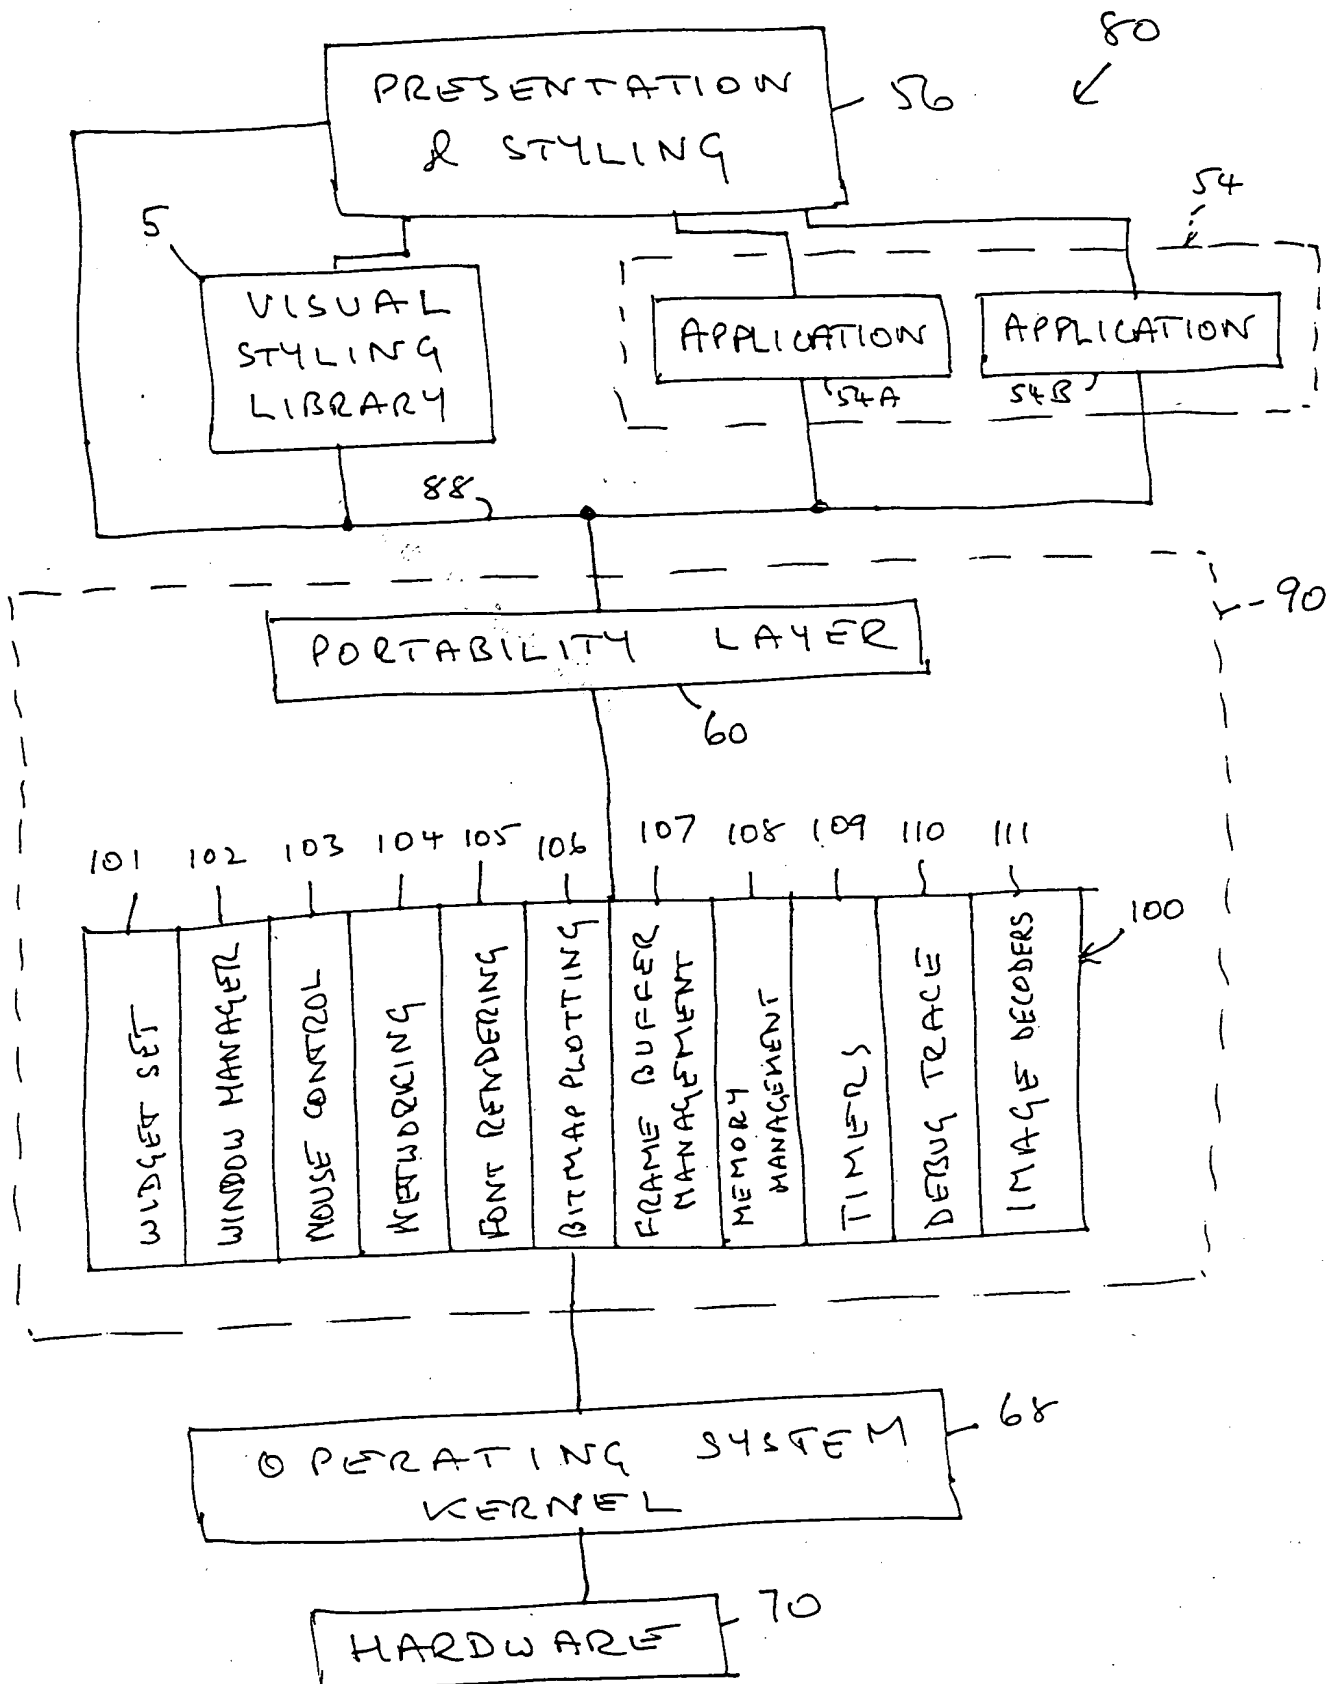 80
PRESENTATION
& STYLING
56
54
5
VISUAL
STYLING
LIBRARY
APPLICATION
APPLICATION
54A
54B
88
90
PORTABILITY LAYER
60
101
102
103
104
105
106
107
108
109
110
111
100
WIDGET SET
WINDOW MANAGER
MOUSE CONTROL
NETWORKING
FONT RENDERING
BITMAP PLOTTING
FRAME BUFFER
MANAGEMENT
MEMORY
MANAGEMENT
TIMERS
DEBUG TRACE
IMAGE DECODERS
OPERATING SYSTEM
KERNEL
68
HARDWARE
70